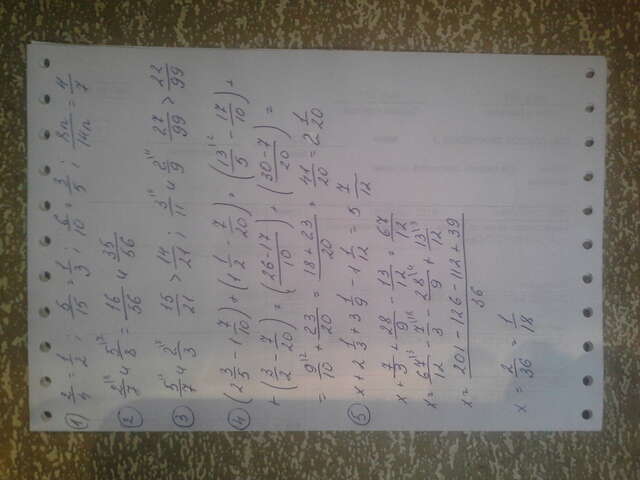 1) 2/4 = 1/2 ; 5/15 = 1/3 ; 6/10 = 3/5 ; 8n/14n = 4/7
2) 2/7 и 5/8 = 16/56 и 35/56
3) 5/7 и 2/3 15/21 > 14/21 ; 3/11 и 2/9 27/99 > 22/99
4) (2 3/5 - 1 7/10) + (1 1/2 - 7/20) = (13/5 - 17/10) +
+ (3/2 - 7/20) = (26-17/10) + (30-7/20) =
= 9/10 + 23/20 = 18+23/20 = 41/20 = 2 1/20
5) x + 2 1/3 + 3 1/9 - 1 1/12 = 5 7/12
x + 7/3 + 28/9 - 13/12 = 67/12
x = 67/12 - 7/3 - 28/9 + 13/12
x = 201 - 126 - 112 + 39/36
x = 2/36 = 1/18